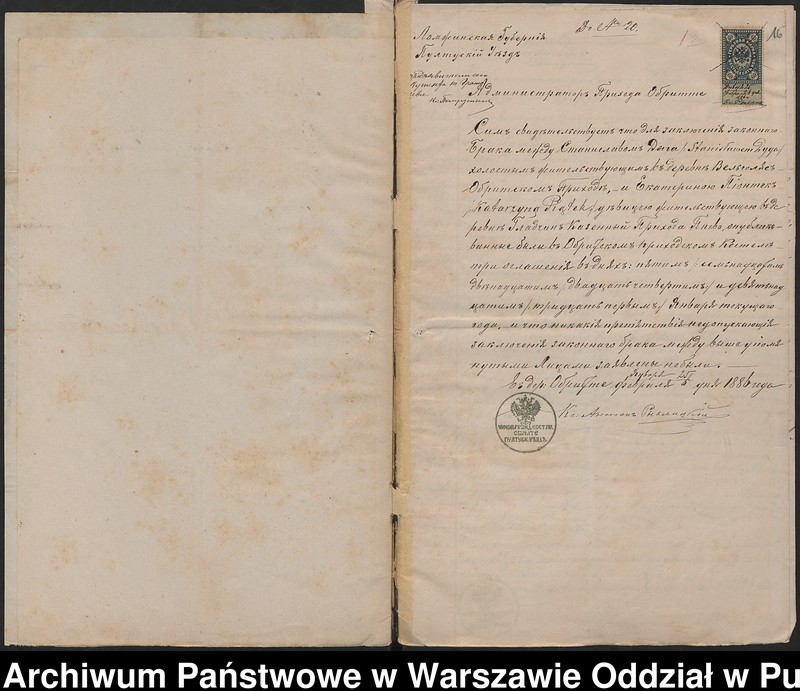 Ломжинская Губернія
Пултускій Уѣздъ
Въ № 20.
16
Администраторъ Прихода Обритте
Симъ свидѣтельствуетъ что для заключенія законнаго
брака между Станиславомъ Дуга /Stanisławem Duga/
холостымъ жительствующимъ въ деревнѣ
Обритскомъ Приходѣ, – и Екатериною Піонтекъ
/Katarzyną Piątek/ дѣвицею жительствующею въ де
ревнѣ Гладчинъ Казенный Прихода Пнево, опублико-
ванные были въ Обритскомъ приходскомъ Костелѣ
три оглашенія въ дняхъ: пятымъ /семнадцатымъ/
двѣнадцатымъ /двадцать четвертымъ/ и девятнад
цатымъ /тридцать первымъ/ Января текущаго
года, и что никакія препятствія недопускающія
заключенія законнаго брака между выше упомя
нутыми Лицами заявлены небыли. –
въ дер. Обритте Января/Февраля дня 1886 года
Кс. Антонъ
Archiwum Państwowe w Warszawie Oddział w Pu